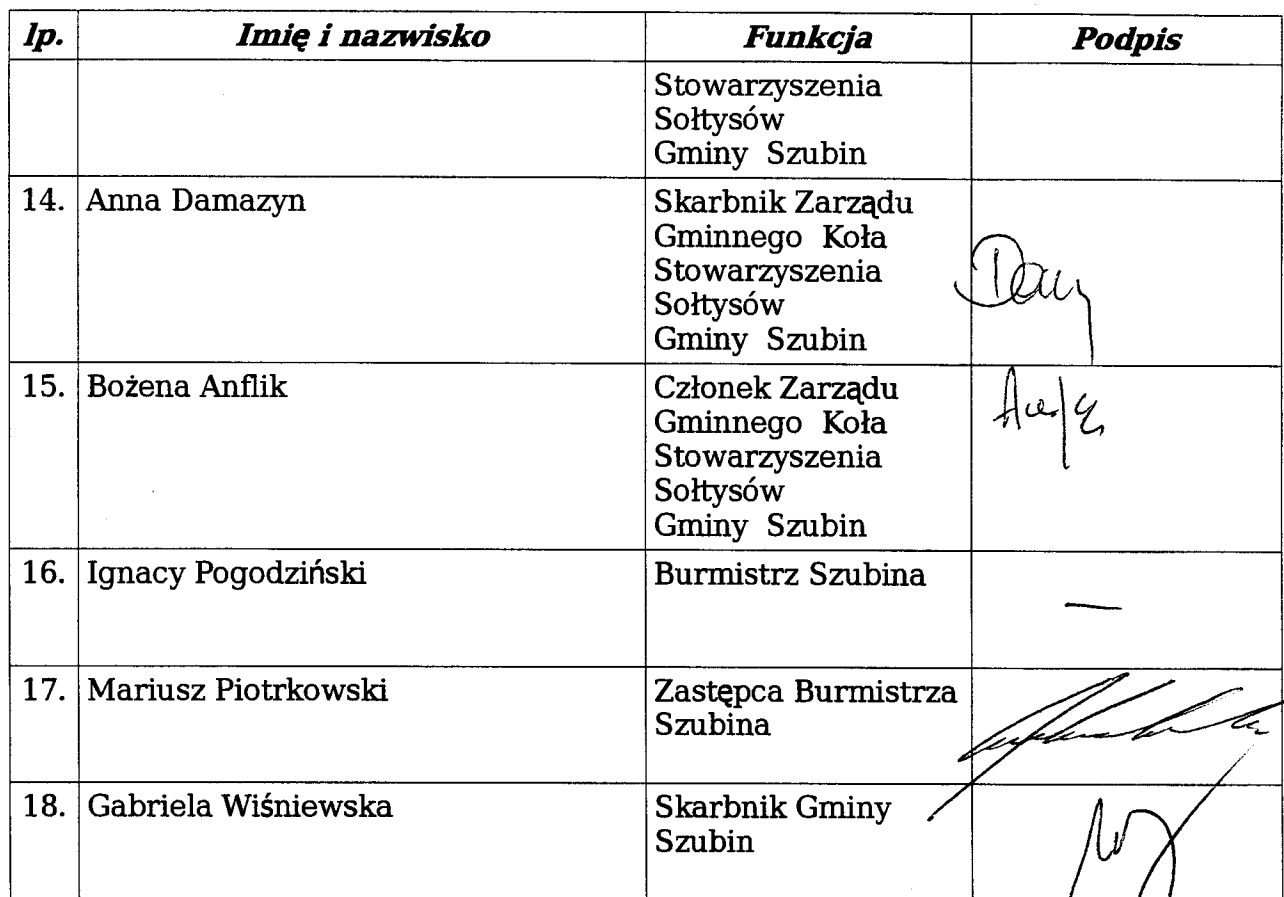 lp. Imię i nazwisko Funkcja Podpis
Stowarzyszenia
Sołtysów
Gminy Szubin
14. Anna Damazyn Skarbnik Zarządu
Gminnego Koła
Stowarzyszenia
Sołtysów
Gminy Szubin
15. Bożena Anflik Członek Zarządu
Gminnego Koła
Stowarzyszenia
Sołtysów
Gminy Szubin
16. Ignacy Pogodziński Burmistrz Szubina
—
17. Mariusz Piotrkowski Zastępca Burmistrza
Szubina
18. Gabriela Wiśniewska Skarbnik Gminy
Szubin